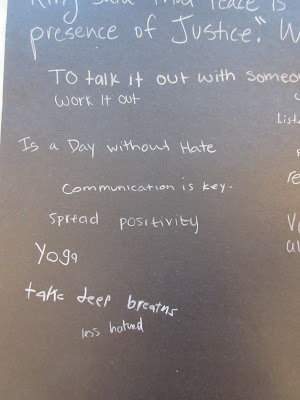 King said that Peace is
presence of Justice." W
To talk it out with someo
work it out
List
Is a Day without Hate
Communication is key.
re
spread positivity
Yoga
take deep breaths
less hatred